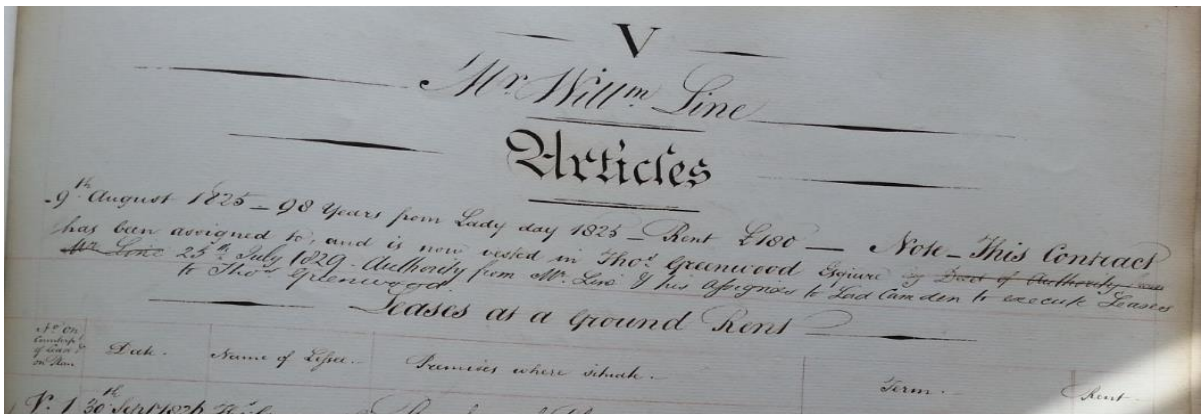 V
Mr. Willm. Line
Articles
9th August 1825 – 98 Years from Lady day 1825 – Rent £180 – Note – This Contract
has been assigned to, and is now vested in Thos. Greenwood Esquire by Deed of Authority from
Mr. Line 25th July 1829 – Authority from Mr. Line & his Assignees to Lord Camden to execute Leases
to Thos. Greenwood
Leases at a Ground Rent
No. on
Counterpt.
of Lease &
on Plan
Date.
Name of Lessee.
Premises where situate.
Term.
Rent.
No. 1 30th Septr. 1826